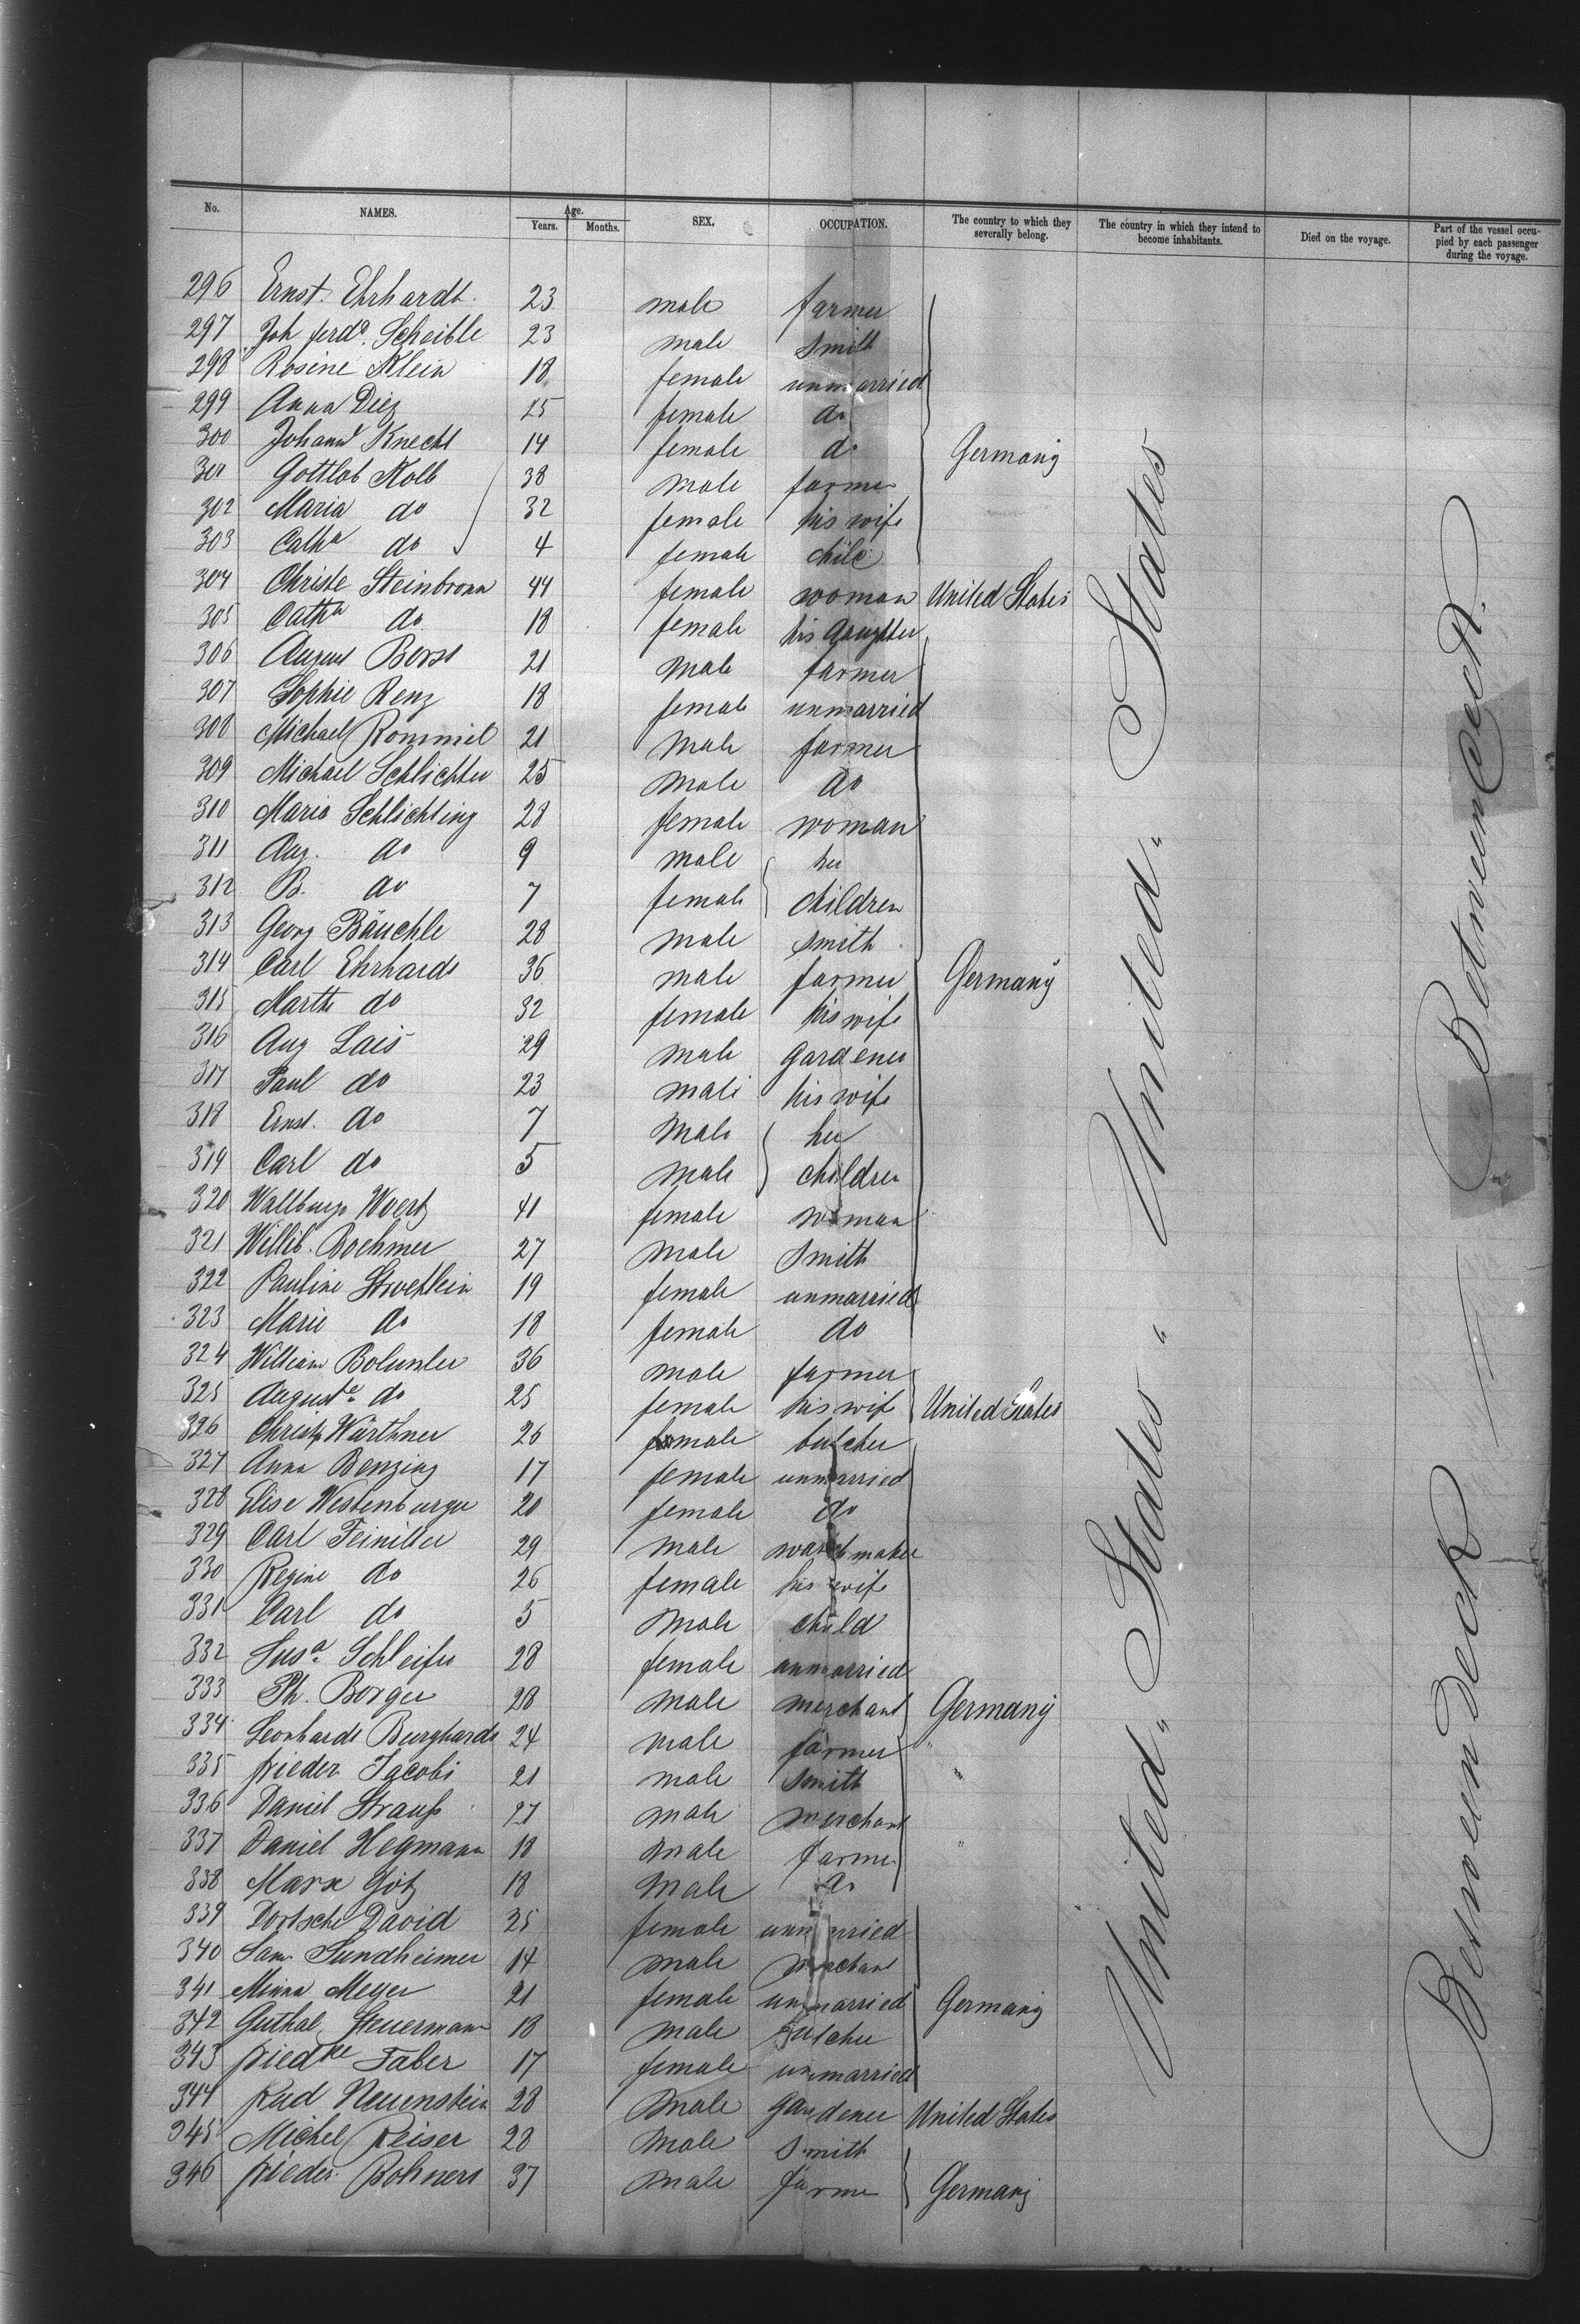 No. NAMES. Age. Years. Months. SEX. OCCUPATION. The country to which they severally belong. The country in which they intend to become inhabitants. Died on the voyage. Part of the vessel occupied by each passenger during the voyage.
296 Ernst Ehrhardt 23 male farmer
297 Joh ferdᵈ. Scheible 23 male smith
298 Rosine Klein 18 female unmarried
299 Anna Diez 25 female do
300 Johanna Knecht 14 female do Germany
301 Gottlob Kolb 38 male farmer
302 Maria do 32 female his wife
303 Cathᵃ do 4 female child
304 Christe Steinbronn 44 female woman United States
305 Cathᵃ do 18 female his daughter
306 August Borst 21 male farmer
307 Sophie Renz 18 female unmarried
308 Michael Rommel 21 male farmer
309 Michael Schlichter 25 male do
310 Maria Schlichting 28 female woman
311 Aug. do 9 male her
312 B. do 7 female children
313 Georg Bäuchle 28 male smith
314 Carl Ehrhardt 36 male farmer Germany
315 Marth do 32 female his wife
316 Aug Lais 29 male gardener
317 Paul do 23 male his wife
318 Ernst. do 7 male her
319 Carl do 5 male children
320 Wallburga Woertz 41 female woman
321 Willib. Boehmer 27 male smith
322 Pauline 19 female unmarried
323 Marie do 18 female do
324 William 36 male farmer
325 Augustᵉ do 25 female his wife United States
326 Christ Würthner 26 male butcher
327 Anna Benzing 17 female unmarried
328 Elise Westenburger 20 female do
329 Carl 29 male watchmaker
330 Regine do 26 female his wife
331 Carl do 5 male child
332 Susᵃ Schleifer 28 female unmarried
333 Ph. Borger 28 male merchant Germany
334 Leonhardt Burghardt 24 male farmer "
335 frieder Jacobi 21 male smith "
336 Daniel Strauß 27 male merchant
337 Daniel Hegmann 18 male farmer "
338 Marx Götz 18 male do
339 Dortsche David 25 female unmarried
340 Sam Sundheimer 14 male merchant
341 Minna Meyer 21 female unmarried Germany
342 Guthal Steuermann 18 male butcher
343 friedᵏᵉ Faber 17 female unmarried
344 Neuenstein 28 male gardener United States
345 Michel Reiser 28 male smith
346 frieder. Bohnert 37 male farmer Germany
United States " United " States " United " States
Between Deck — " — Between Deck.